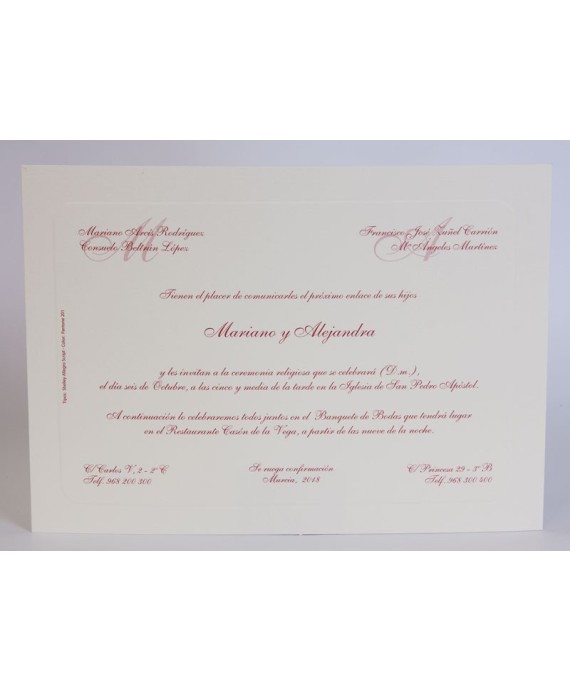 Mariano Arcis Rodríguez
Consuelo Beltrán López
M
Francisco José Zuñel Carrión
Mª Angeles Martínez
A
Tienen el placer de comunicarles el próximo enlace de sus hijos
Mariano y Alejandra
y les invitan a la ceremonia religiosa que se celebrará (D.m.),
el día seis de Octubre, a las cinco y media de la tarde en la Iglesia de San Pedro Apóstol.
A continuación lo celebraremos todos juntos en el Banquete de Bodas que tendrá lugar
en el Restaurante Casón de la Vega, a partir de las nueve de la noche.
C/ Carlos V, 2 - 2º C
Telf. 968 200 300
Se ruega confirmación
Murcia, 2018
C/ Princesa 29 - 3º B
Telf. 968 300 400
Tipos: Shelley Allegro Script - Color: Pantone 201